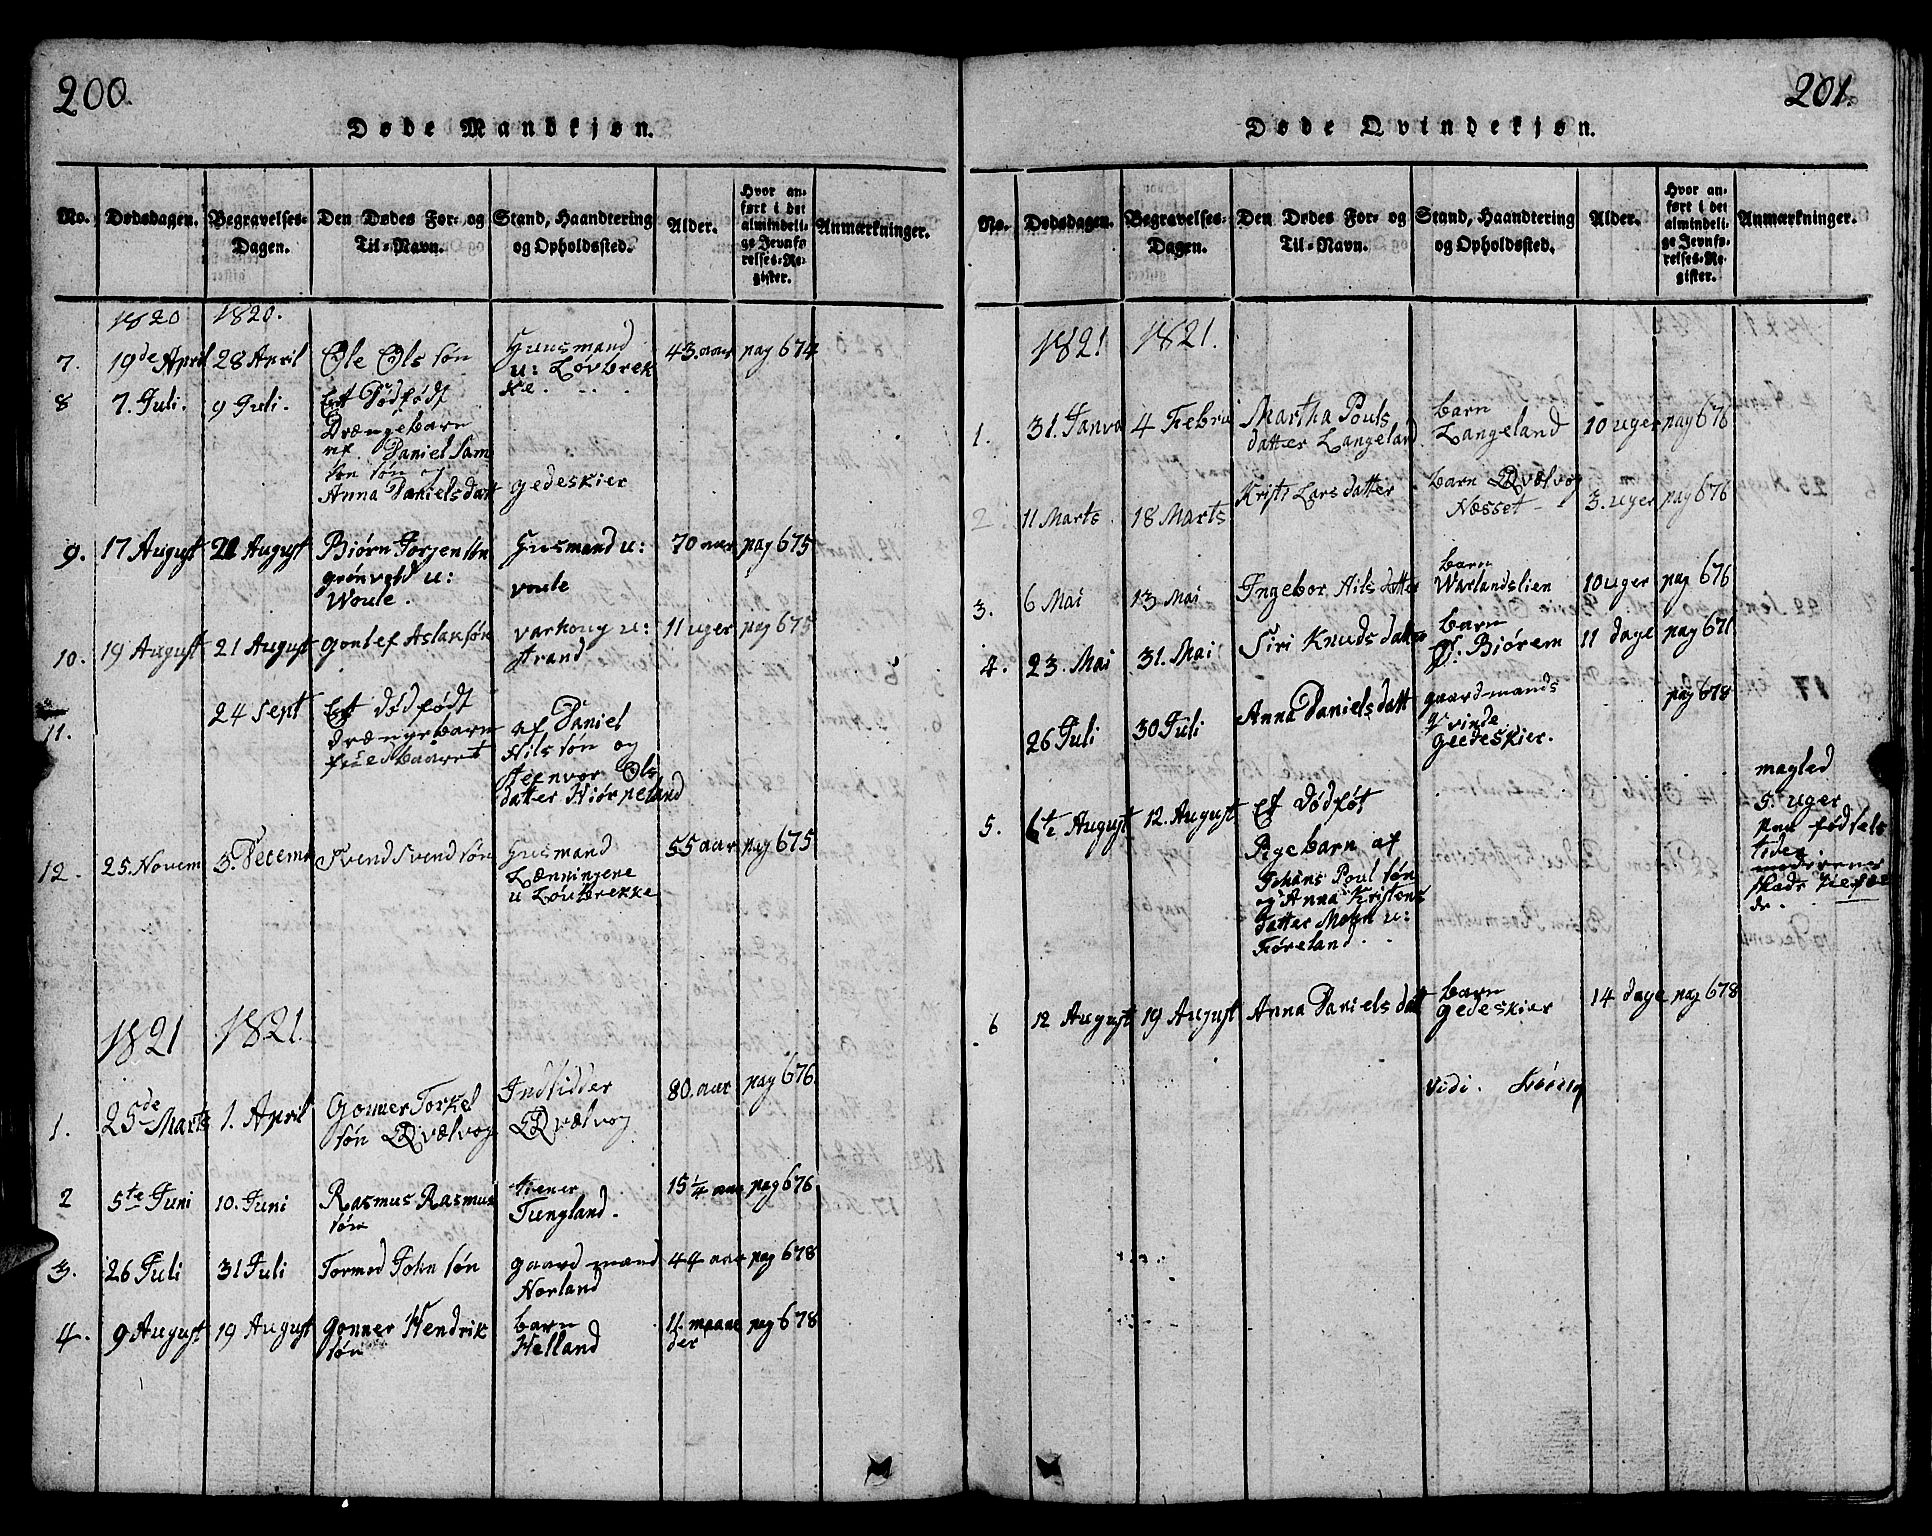 200.
Døde Mandkjøn.
No. Dødsdagen. Begravelses-Dagen. Den Dødes For- og Til-Navn. Stand, Haandtering og Opholdssted. Alder. Hvor anført i det almindelige Jevnførelses-Register. Anmærkninger.
1820 1820.
7. 19de April 28 April Ole Olssøn Huusmand 43. aar pag 674
u: Løvbrek
ke.
8 7. Juli. 9 Juli. Et Dødfødt
Drængebarn
af. Daniel Sam
søn og
Anna Danielsdatt gedeskier
9. 17 August 21 August Biørn Torjensøn Husmand u: 70 aar pag 675
grønvold u: voule
Woule.
10. 19 August 21 August gonlef Aslaksøn varhoug u: 11 uger pag 675
strand
11. 24 Sept Et dødfødt af Daniel
drængebarn Nilssøn og
Steenvor Ols
datter Hiørpeland
12. 25. Novem 3. Decem Svend Svendsøn Husmand 55 aar pag 675
Lænningene
u Løubrekke
1821 1821.
1. 25de Marts 1. April Gonner Torkel Indsidder 80. aar pag 676
søn Qvælvog Qvælvog
2 5te Juni 10. Juni Rasmus Rasmus tiener 15 1/4 aar pag 676
søn Tungland.
3. 26 Juli 31 Juli Tormod John søn gaard mand 44 aar pag 678
Norland
4. 9 August 19 August gonner Hendrik barn 11. maane pag 678
søn Helland der
201.
Døde Qvindekjøn.
No. Dødsdagen. Begravelses-Dagen. Den Dødes For- og Til-Navn. Stand, Haandtering og Opholdssted. Alder. Hvor anført i det almindelige Jevnførelses-Register. Anmærkninger.
1821 1821.
1. 31. Janva 4 Febru Martha Pouls barn 10 uger pag 676
datter Langeland Langeland
2. 11 Marts. 18 Marts Kristi Larsdatter barn Qvælvog 3. uger pag 676
Næsset
3. 6 Mai 13 Mai Ingebor Nilsdatter barn 10 uger pag 676
Warlandslien
4. 23. Mai 31. Mai Siri Knudsdatter barn 11 dage pag 677
Biørem
26 Juli 30 Juli Anna Danielsdatt gaardmands pag 678
qvinde
Geedeskier.
5. 6te August 12. August Et dødføt
Pigebarn af
Johans Poulsøn
og Anna Kristens
datter Mogn u:
Fiøreland.
maglad
5. uger
paa fødsels
tiden
6 12 August 19 August Anna Daniels datt barn 14 dage pag 678
gedeskier
Vidi.